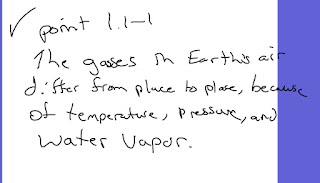 ✓ point 1.1-1
The gasses in Earth's air
differ from place to place, because
of temperature, pressure, and
Water Vapor.